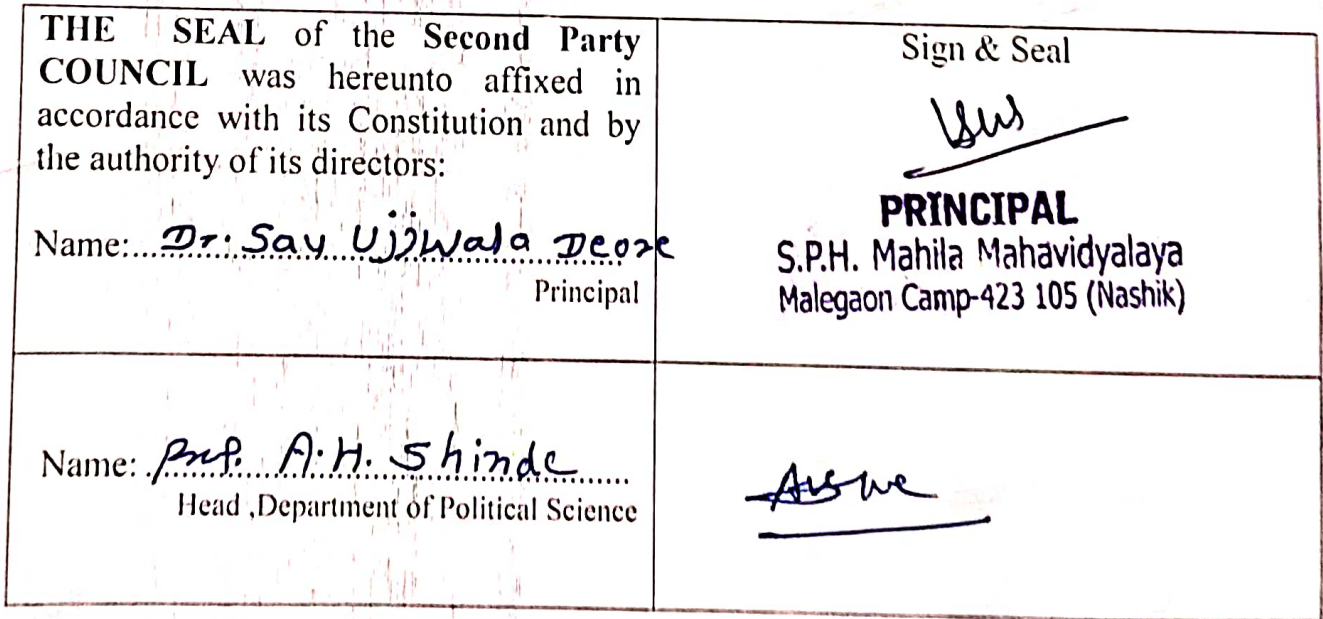 THE SEAL of the Second Party
COUNCIL was hereunto affixed in
accordance with its Constitution and by
the authority of its directors:
Name: Dr. Sau Ujjwala Deore
Principal
Sign & Seal
PRINCIPAL
S.P.H. Mahila Mahavidyalaya
Malegaon Camp-423 105 (Nashik)
Name: Prof. A.H. Shinde
Head ,Department of Political Science